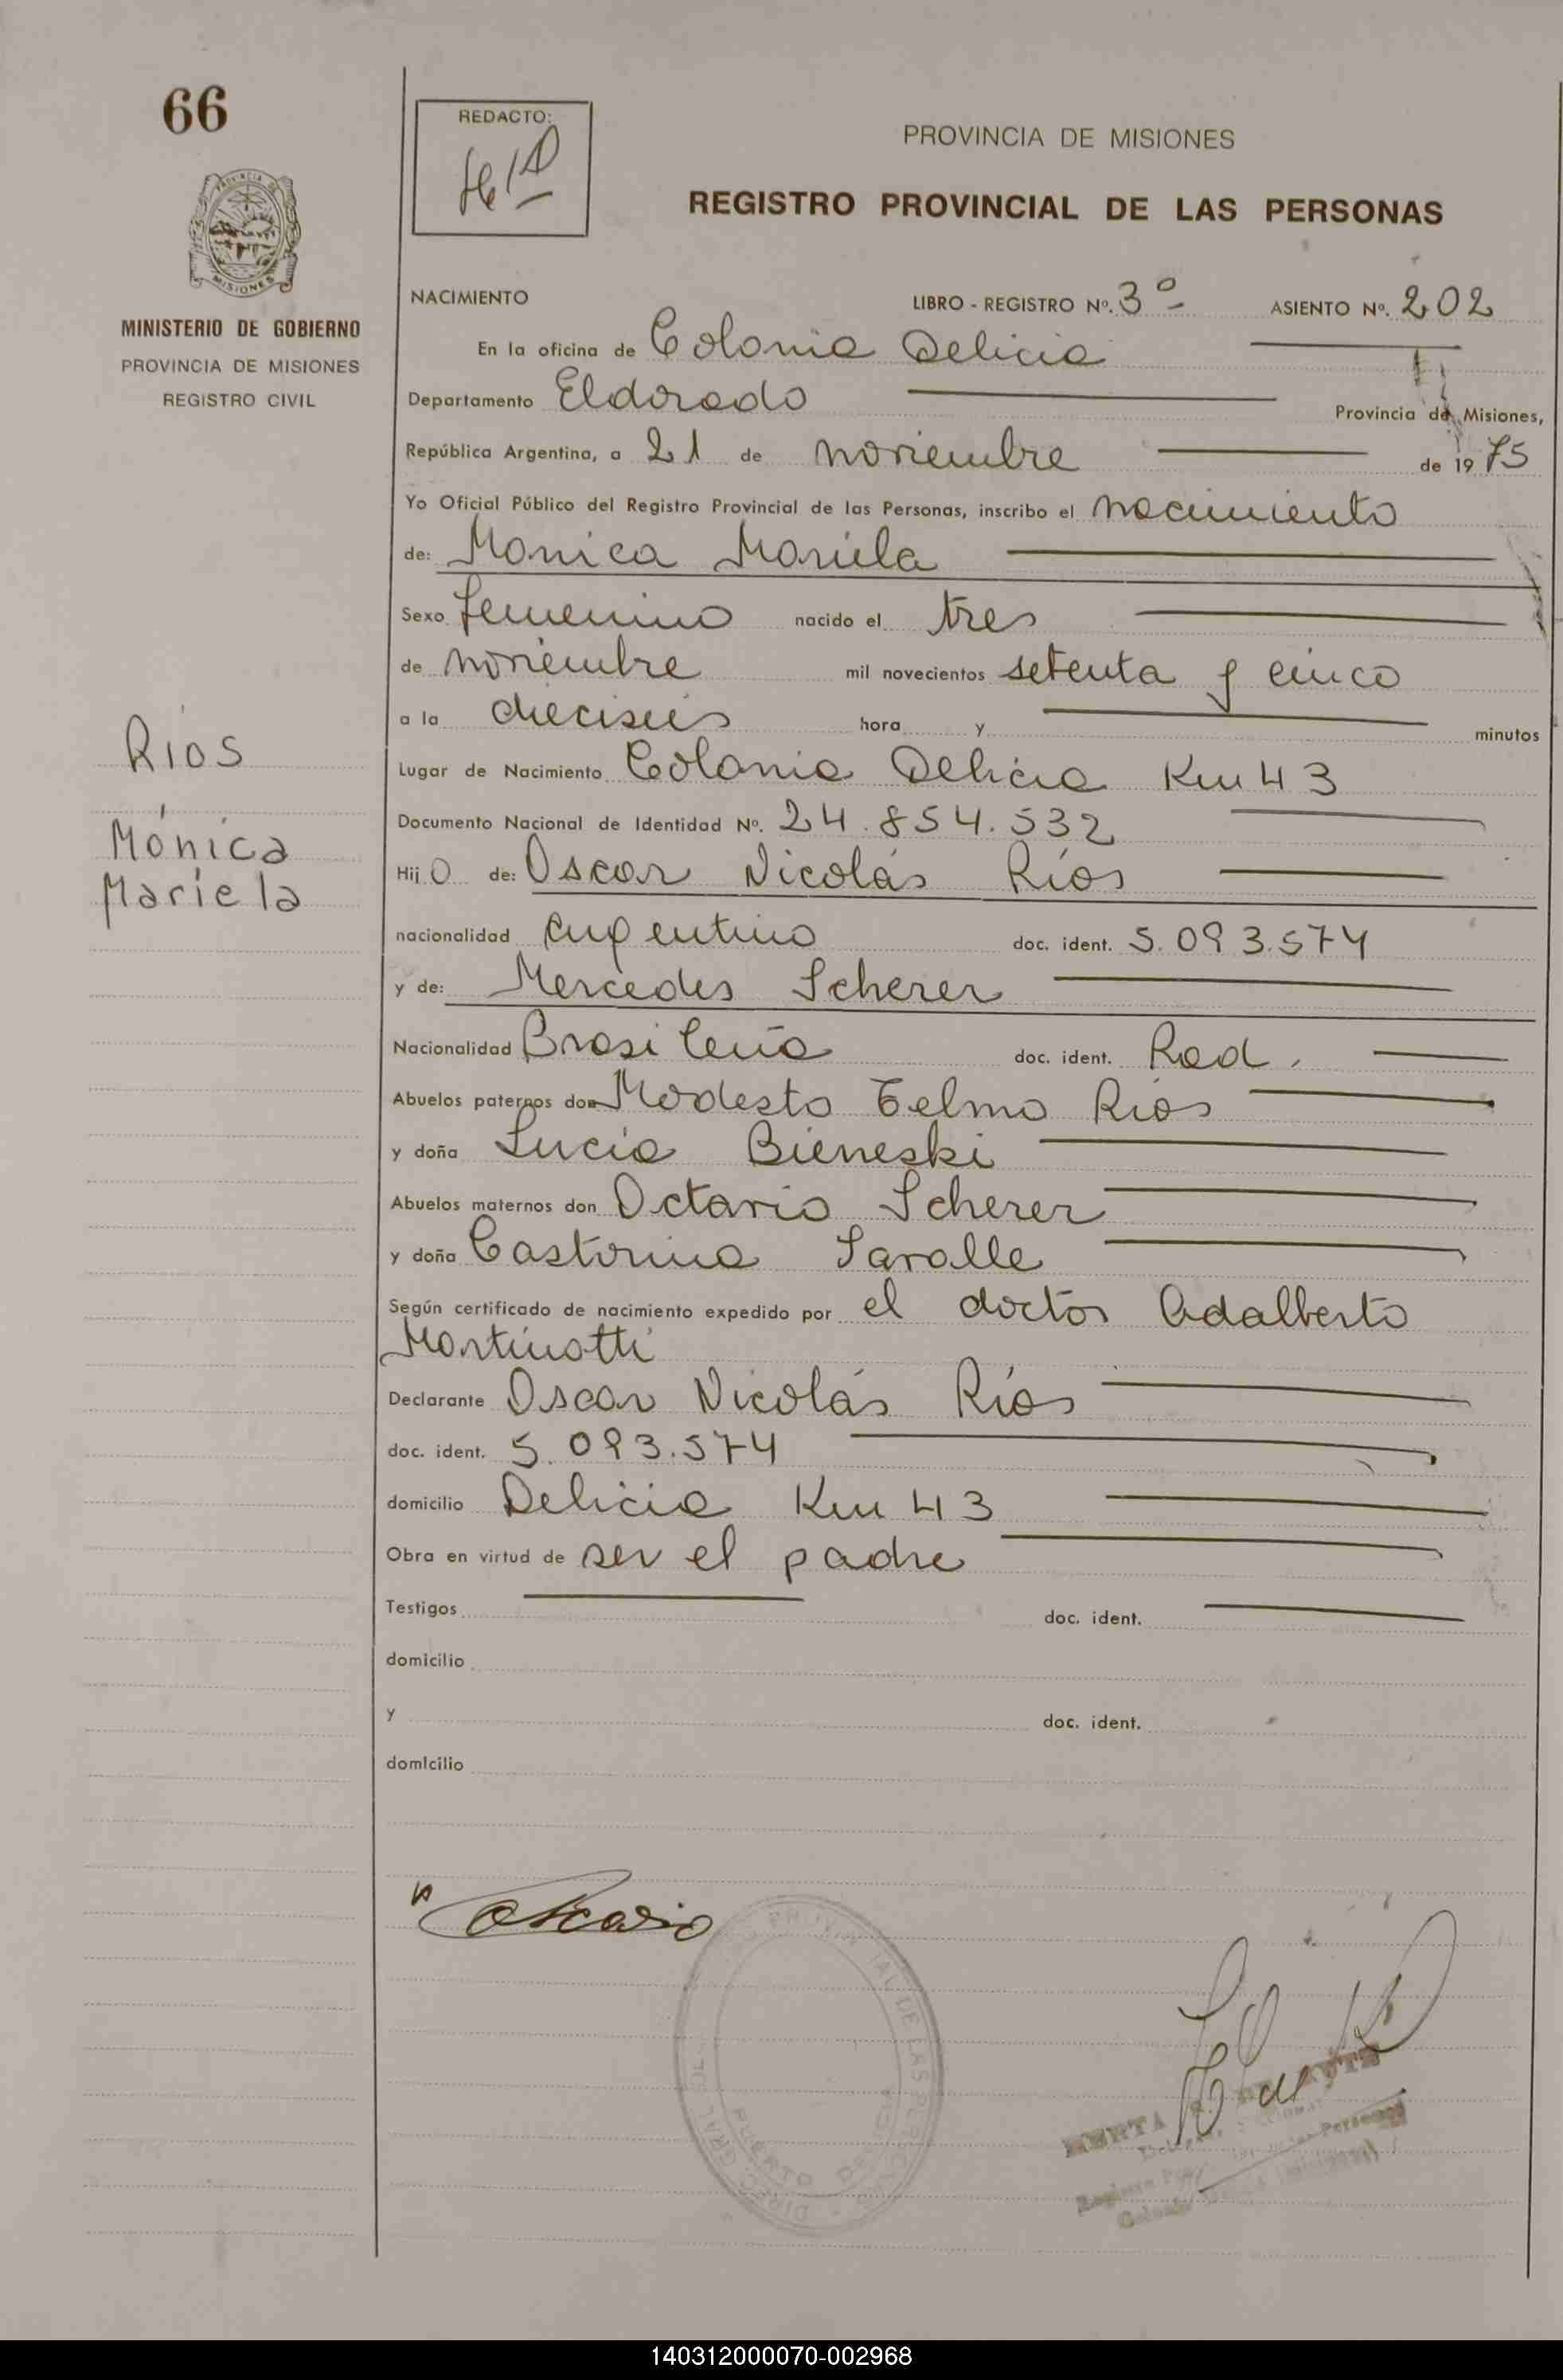 66
REDACTO:
PROVINCIA DE MISIONES
REGISTRO PROVINCIAL DE LAS PERSONAS
PROVINCIA DE
MISIONES
MINISTERIO DE GOBIERNO
PROVINCIA DE MISIONES
REGISTRO CIVIL
NACIMIENTO LIBRO - REGISTRO Nº. 3º ASIENTO Nº. 202
En la oficina de Colonia Delicia
Departamento Eldorado Provincia de Misiones,
República Argentina, a 21 de noviembre de 19 75
Yo Oficial Público del Registro Provincial de las Personas, inscribo el nacimiento
de: Monica Mariela
Sexo femenino nacido el tres
de noviembre mil novecientos setenta y cinco
a la dieciseis hora y minutos
Lugar de Nacimiento Colonia Delicia Km 43
Ríos
Mónica
Mariela
Documento Nacional de Identidad Nº. 24.854.532
Hij O de: Oscar Nicolás Ríos
nacionalidad argentino doc. ident. 5.093.574
y de: Mercedes Scherer
Nacionalidad Brasileña doc. ident. Rad.
Abuelos paternos don Modesto Telmo Rios
y doña Lucia Bieneski
Abuelos maternos don Octavio Scherer
y doña Castorina Saralle
Según certificado de nacimiento expedido por el doctor Adalberto
Martinotti
Declarante Oscar Nicolás Ríos
doc. ident. 5.093.574
domicilio Delicia Km 43
Obra en virtud de ser el padre
Testigos doc. ident.
domicilio
y doc. ident.
domicilio
DE LAS PERSONAS
PUERTO
140312000070-002968